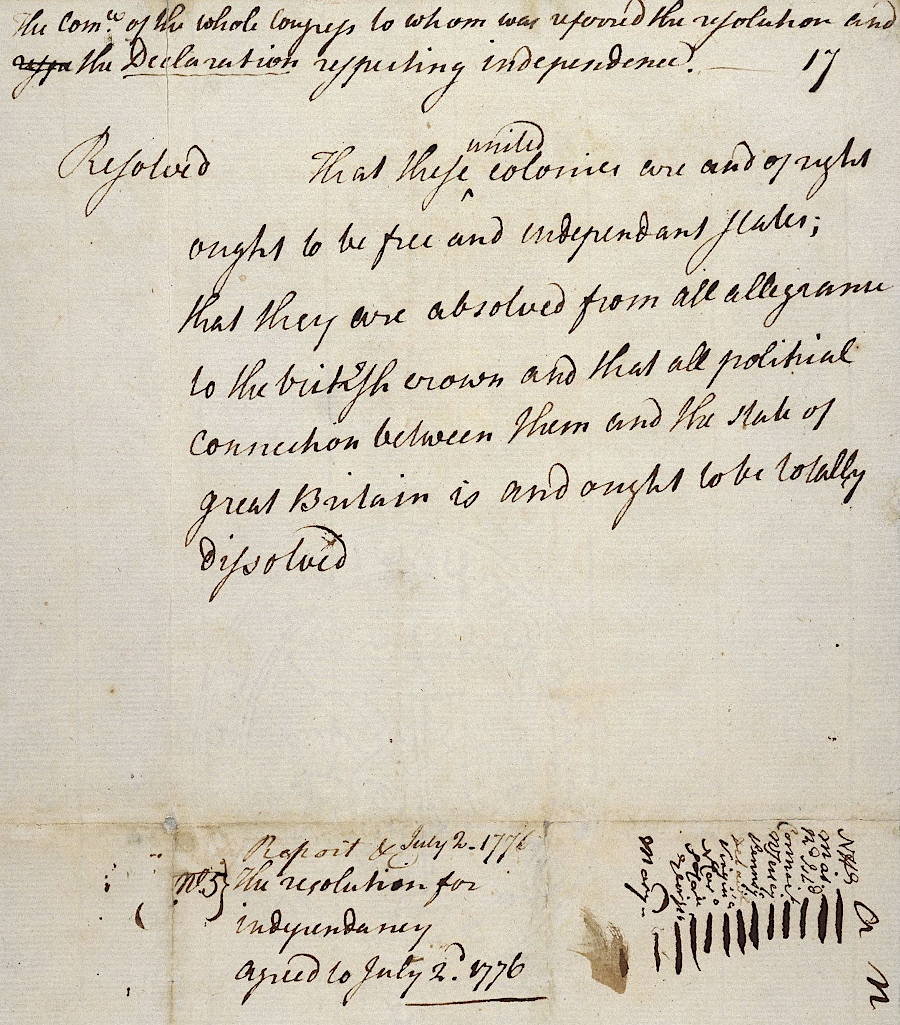 The Comee. of the whole Congress to whom was referred the resolution and
the Declaration respecting independence. 17
Resolved That these united colonies are and of right
ought to be free and independant states;
that they are absolved from all allegiance
to the british crown and that all political
connection between them and the state of
great Britain is and ought to be totally
dissolved
Report & July 2. 1776
No. 5} The resolution for
independancy
agreed to July 2d. 1776